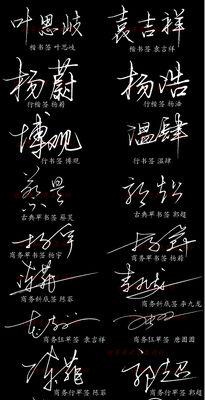 叶思岐 袁吉祥
楷书签 叶思岐 楷书签 袁吉祥
杨蔚 杨浩
行楷签 杨蔚 行楷签 杨浩
博观 温肆
行书签 博观 行书签 温肆
蔡昊 郭超
古典草书签 蔡昊 古典草书签 郭超
杨宇 杨蔚
商务草书签 杨宇 商务草书签 杨蔚
陈菲 李九龙
商务斜底签 陈菲 商务斜底签 李九龙
袁吉祥 唐圆圆
商务狂草签 袁吉祥 商务狂草签 唐圆圆
陈菲 郭超
商务行草签 陈菲 商务行草签 郭超